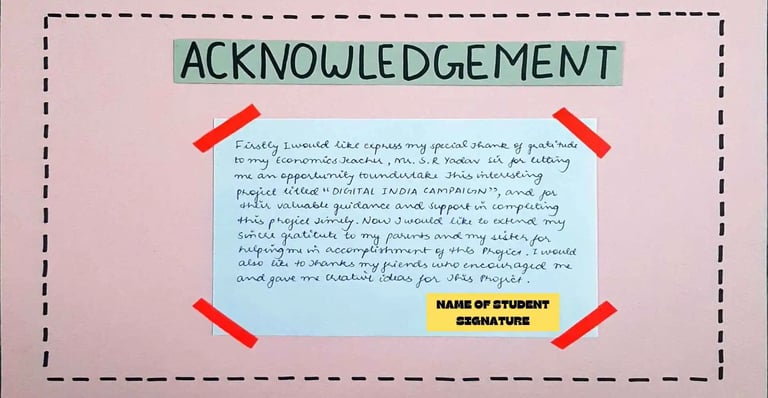 ACKNOWLEDGEMENT
Firstly I would like express my special thank of gratitude
to my Economics teacher, Mr. S.R Yadav Sir for letting
me an opportunity to undertake this interesting
project titled "DIGITAL INDIA CAMPAIGN", and for
their valuable guidance and support in completing
this project timely. Now I would like to extend my
sincere gratitude to my parents and my sister for
helping me in accomplishment of this Project. I would
also like to thanks my friends who encouraged me
and gave me creative ideas for this Project.
NAME OF STUDENT
SIGNATURE